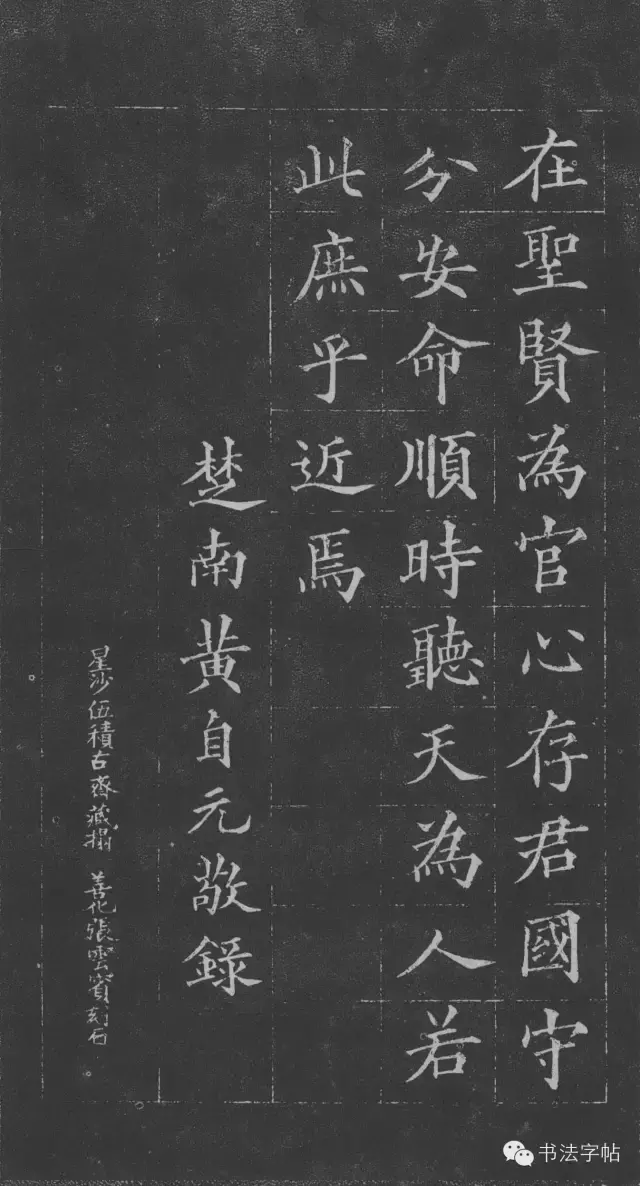 在聖賢為官心存君國守
分安命順時聽天為人若
此庶乎近焉
楚南黄自元敬錄
星沙伍積古齋藏搨 善化張雲賓刻石
书法字帖